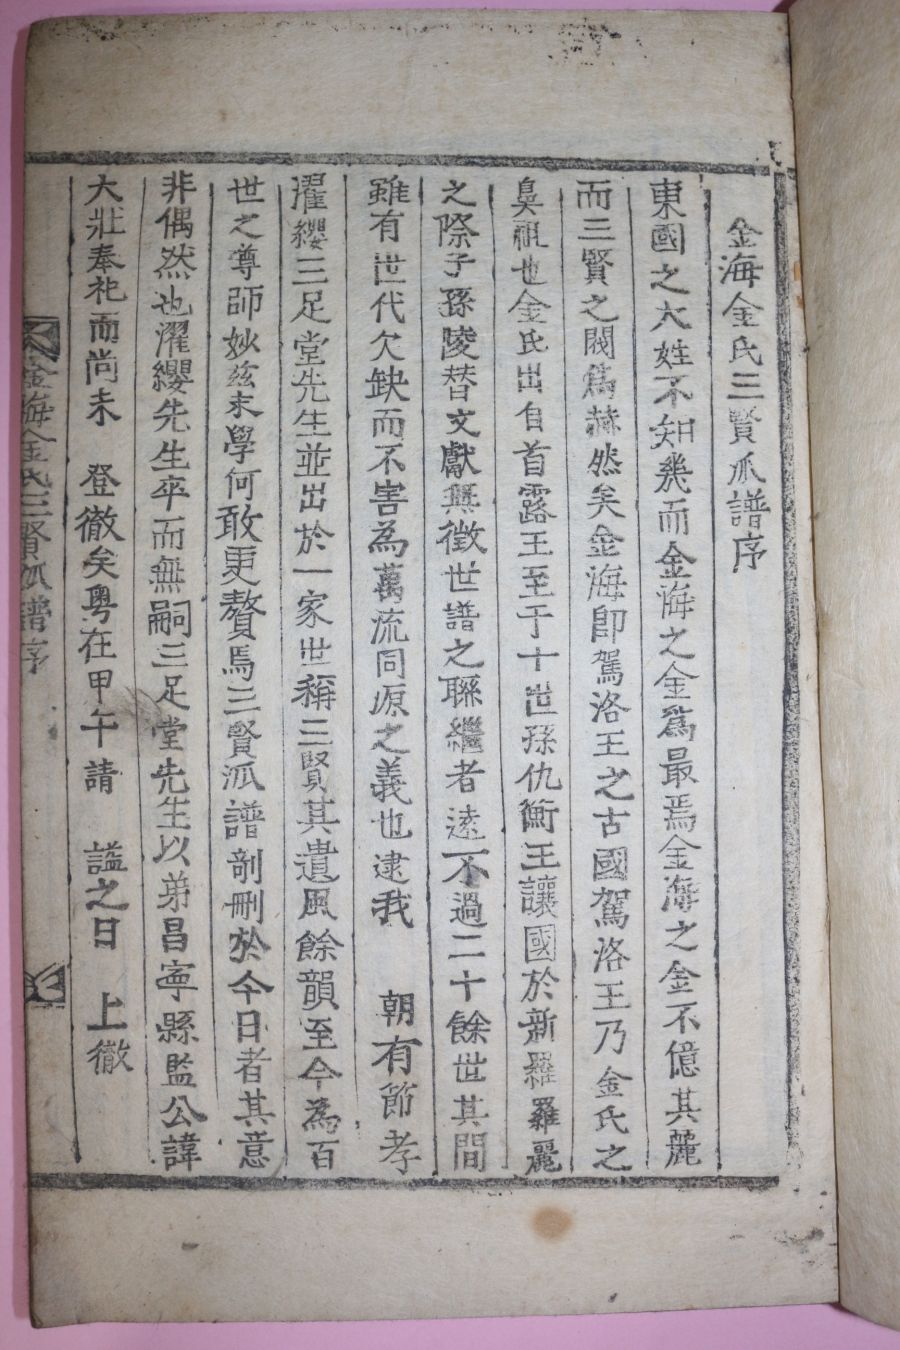 金海金氏三賢派譜序
東國之大姓不知幾而金海之金爲最焉金海之金不億其麗
而三賢之閥爲赫然矣金海卽駕洛王之古國駕洛王乃金氏之
鼻祖也金氏出自首露王至于十世孫仇衡王讓國於新羅羅麗
之際子孫陵替文獻無徵世譜之聯繼者逺不過二十餘世其間
雖有世代欠缺而不害為萬流同源之義也逮我 朝有節孝
濯纓三足堂先生並出於一家世稱三賢其遺風餘韻至今為百
世之尊師妙玆末學何敢更贅焉三賢派譜剞刪於今日者其意
非偶然也濯纓先生卒而無嗣三足堂先生以弟昌寧縣監公諱
大壯奉祀而尚未 登徹矣粤在甲午請 諡之日 上徹
金海金氏三賢派譜序